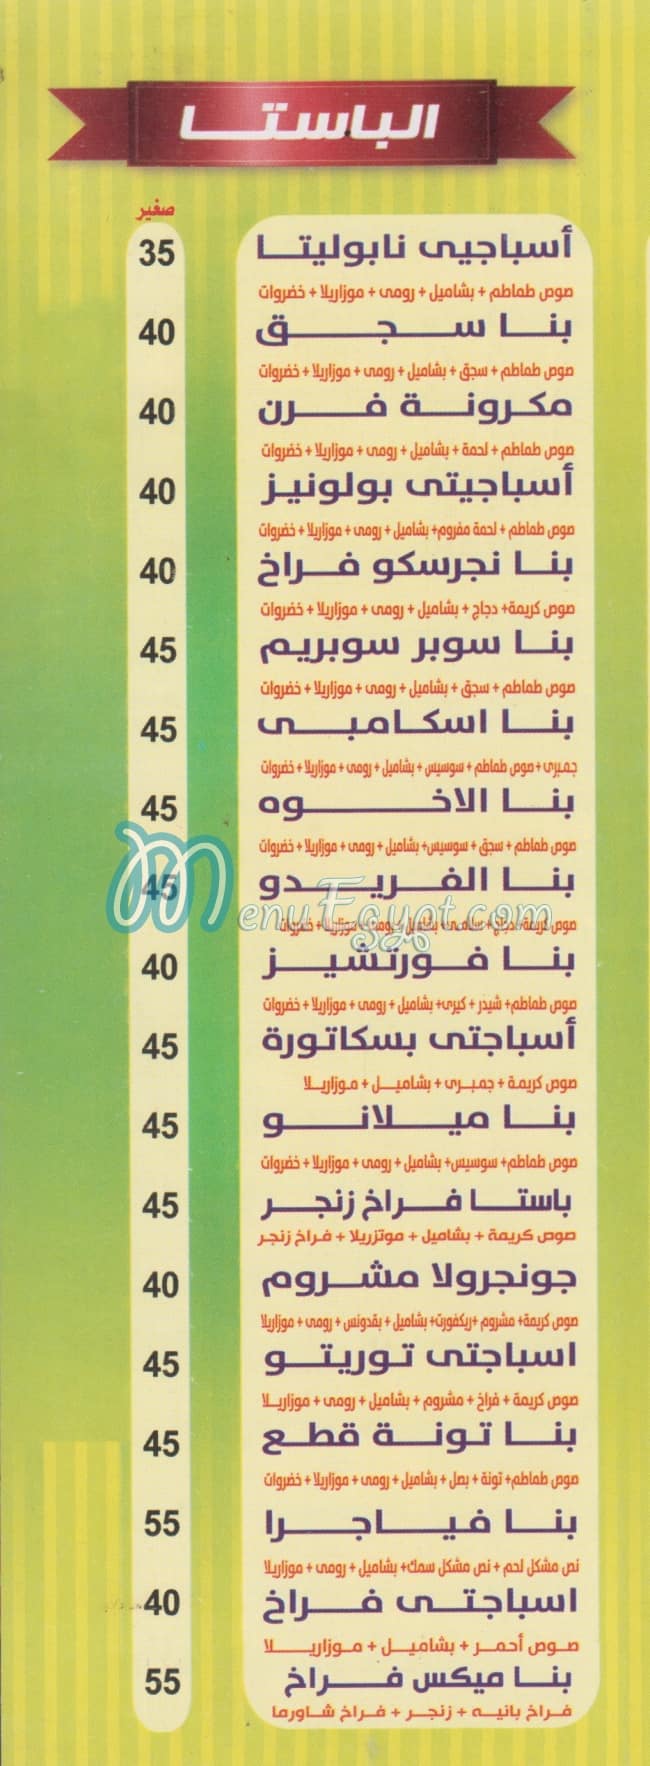 الباستا
صغير
أسباجيى نابوليتا 35
صوص طماطم + بشاميل + رومى + موزاريلا + خضروات
بنا سجق 40
صوص طماطم + سجق + بشاميل + رومى + موزاريلا + خضروات
مكرونة فرن 40
صوص طماطم + لحمة + بشاميل + رومى + موزاريلا + خضروات
أسباجيتى بولونيز 40
صوص طماطم + لحمة مفروم+ بشاميل + رومى + موزاريلا + خضروات
بنا نجرسكو فراخ 40
صوص كريمة+ دجاج + بشاميل + رومى + موزاريلا + خضروات
بنا سوبر سوبريم 45
صوص طماطم + سجق + بشاميل + رومى + موزاريلا + خضروات
بنا اسكامبى 45
جمبرى + صوص طماطم + سوسيس + بشاميل + رومى + موزاريلا + خضروات
بنا الاخوه 45
صوص طماطم + سجق + سوسيس+ بشاميل + رومى + موزاريلا + خضروات
بنا الفريدو 45
MenuEgypt.com
صوص كريمة+ دجاج+ سلامى+ بشاميل+ رومى+ موزاريلا+ خضروات
بنا فورتشيز 40
صوص طماطم+ شيدر + كيرى+ بشاميل + رومى + موزاريلا + خضروات
أسباجتى بسكاتورة 45
صوص كريمة + جمبرى + بشاميل + موزاريلا
بنا ميلانو 45
صوص طماطم+ سوسيس+ بشاميل + رومى + موزاريلا + خضروات
باستا فراخ زنجر 45
صوص كريمة + بشاميل + موتزريلا + فراخ زنجر
جونجرولا مشروم 40
صوص كريمة+ مشروم +ريكفورت+ بشاميل + بقدونس + رومى + موزاريلا
اسباجتى توريتو 45
صوص كريمة + فراخ + مشروم + بشاميل + رومى + موزاريلا
بنا تونة قطع 45
صوص طماطم+ تونة + بصل + بشاميل + رومى + موزاريلا + خضروات
بنا فياجرا 55
نص مشكل لحم + نص مشكل سمك+ بشاميل + رومى + موزاريلا
اسباجتى فراخ 40
صوص أحمر + بشاميل + موزاريلا
بنا ميكس فراخ 55
فراخ بانيه + زنجر + فراخ شاورما